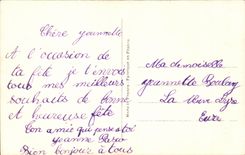 Chère yeannette
A l'occasion de
ta fête je t'envois
tout mes meilleurs
souhaits de bonne
et heureuse fête
Ton amie qui pense a toi
yeanne
Bien bonjour à tous
Mademoiselle
yeannette
La
Eure